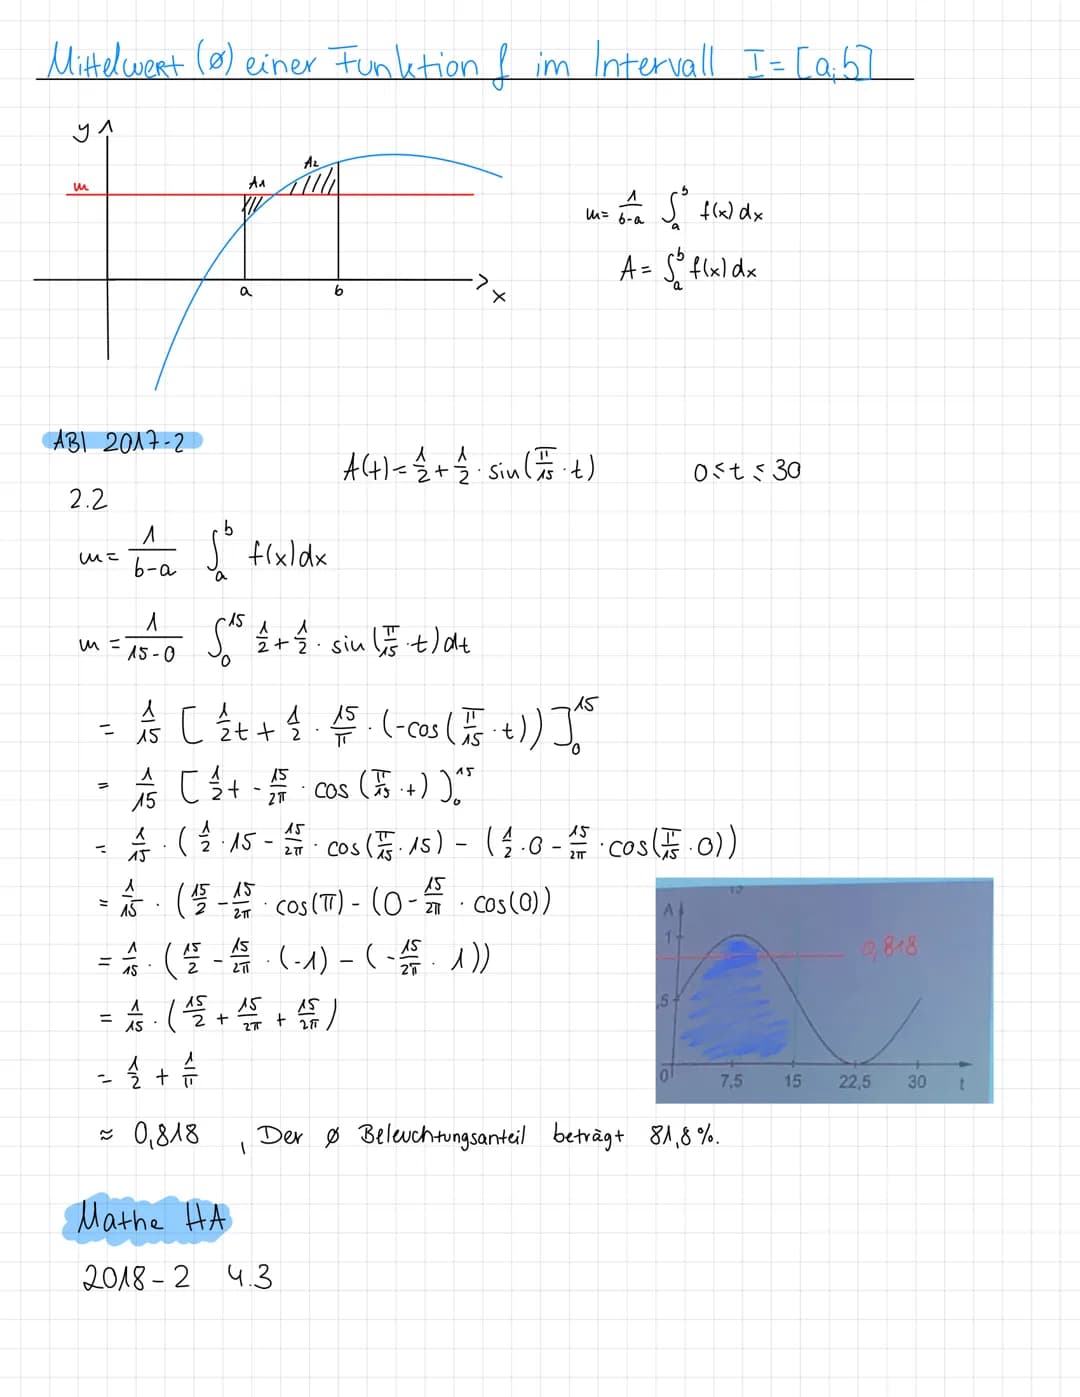 Mittelwert (ø) einer Funktion f im Intervall I = [a;b]
y
m
A1
A2
a
b
x
m = 1/(b-a) ∫_a^b f(x) dx
A = ∫_a^b f(x) dx
ABI 2017-2
A(t) = 1/2 + 1/2 · sin(π/15 · t)   0 ≤ t ≤ 30
2.2
m = 1/(b-a) ∫_a^b f(x) dx
m = 1/(15-0) ∫_0^15 1/2 + 1/2 · sin(π/15 · t) dt
= 1/15 [ 1/2 t + 1/2 · 15/π · (-cos(π/15 · t)) ]_0^15
= 1/15 [ 1/2 t - 15/2π · cos(π/15 · t) ]_0^15
= 1/15 · (1/2 · 15 - 15/2π · cos(π/15 · 15) - (1/2 · 0 - 15/2π · cos(π/15 · 0))
= 1/15 · (15/2 - 15/2π · cos(π) - (0 - 15/2π · cos(0))
= 1/15 · (15/2 - 15/2π · (-1) - (-15/2π · 1))
= 1/15 · (15/2 + 15/2π + 15/2π)
= 1/2 + 1/π
≈ 0,818 , Der ø Beleuchtungsanteil beträgt 81,8%.
A
1
0,818
,5
0
7,5
15
22,5
30
t
Mathe HA
2018-2 4.3